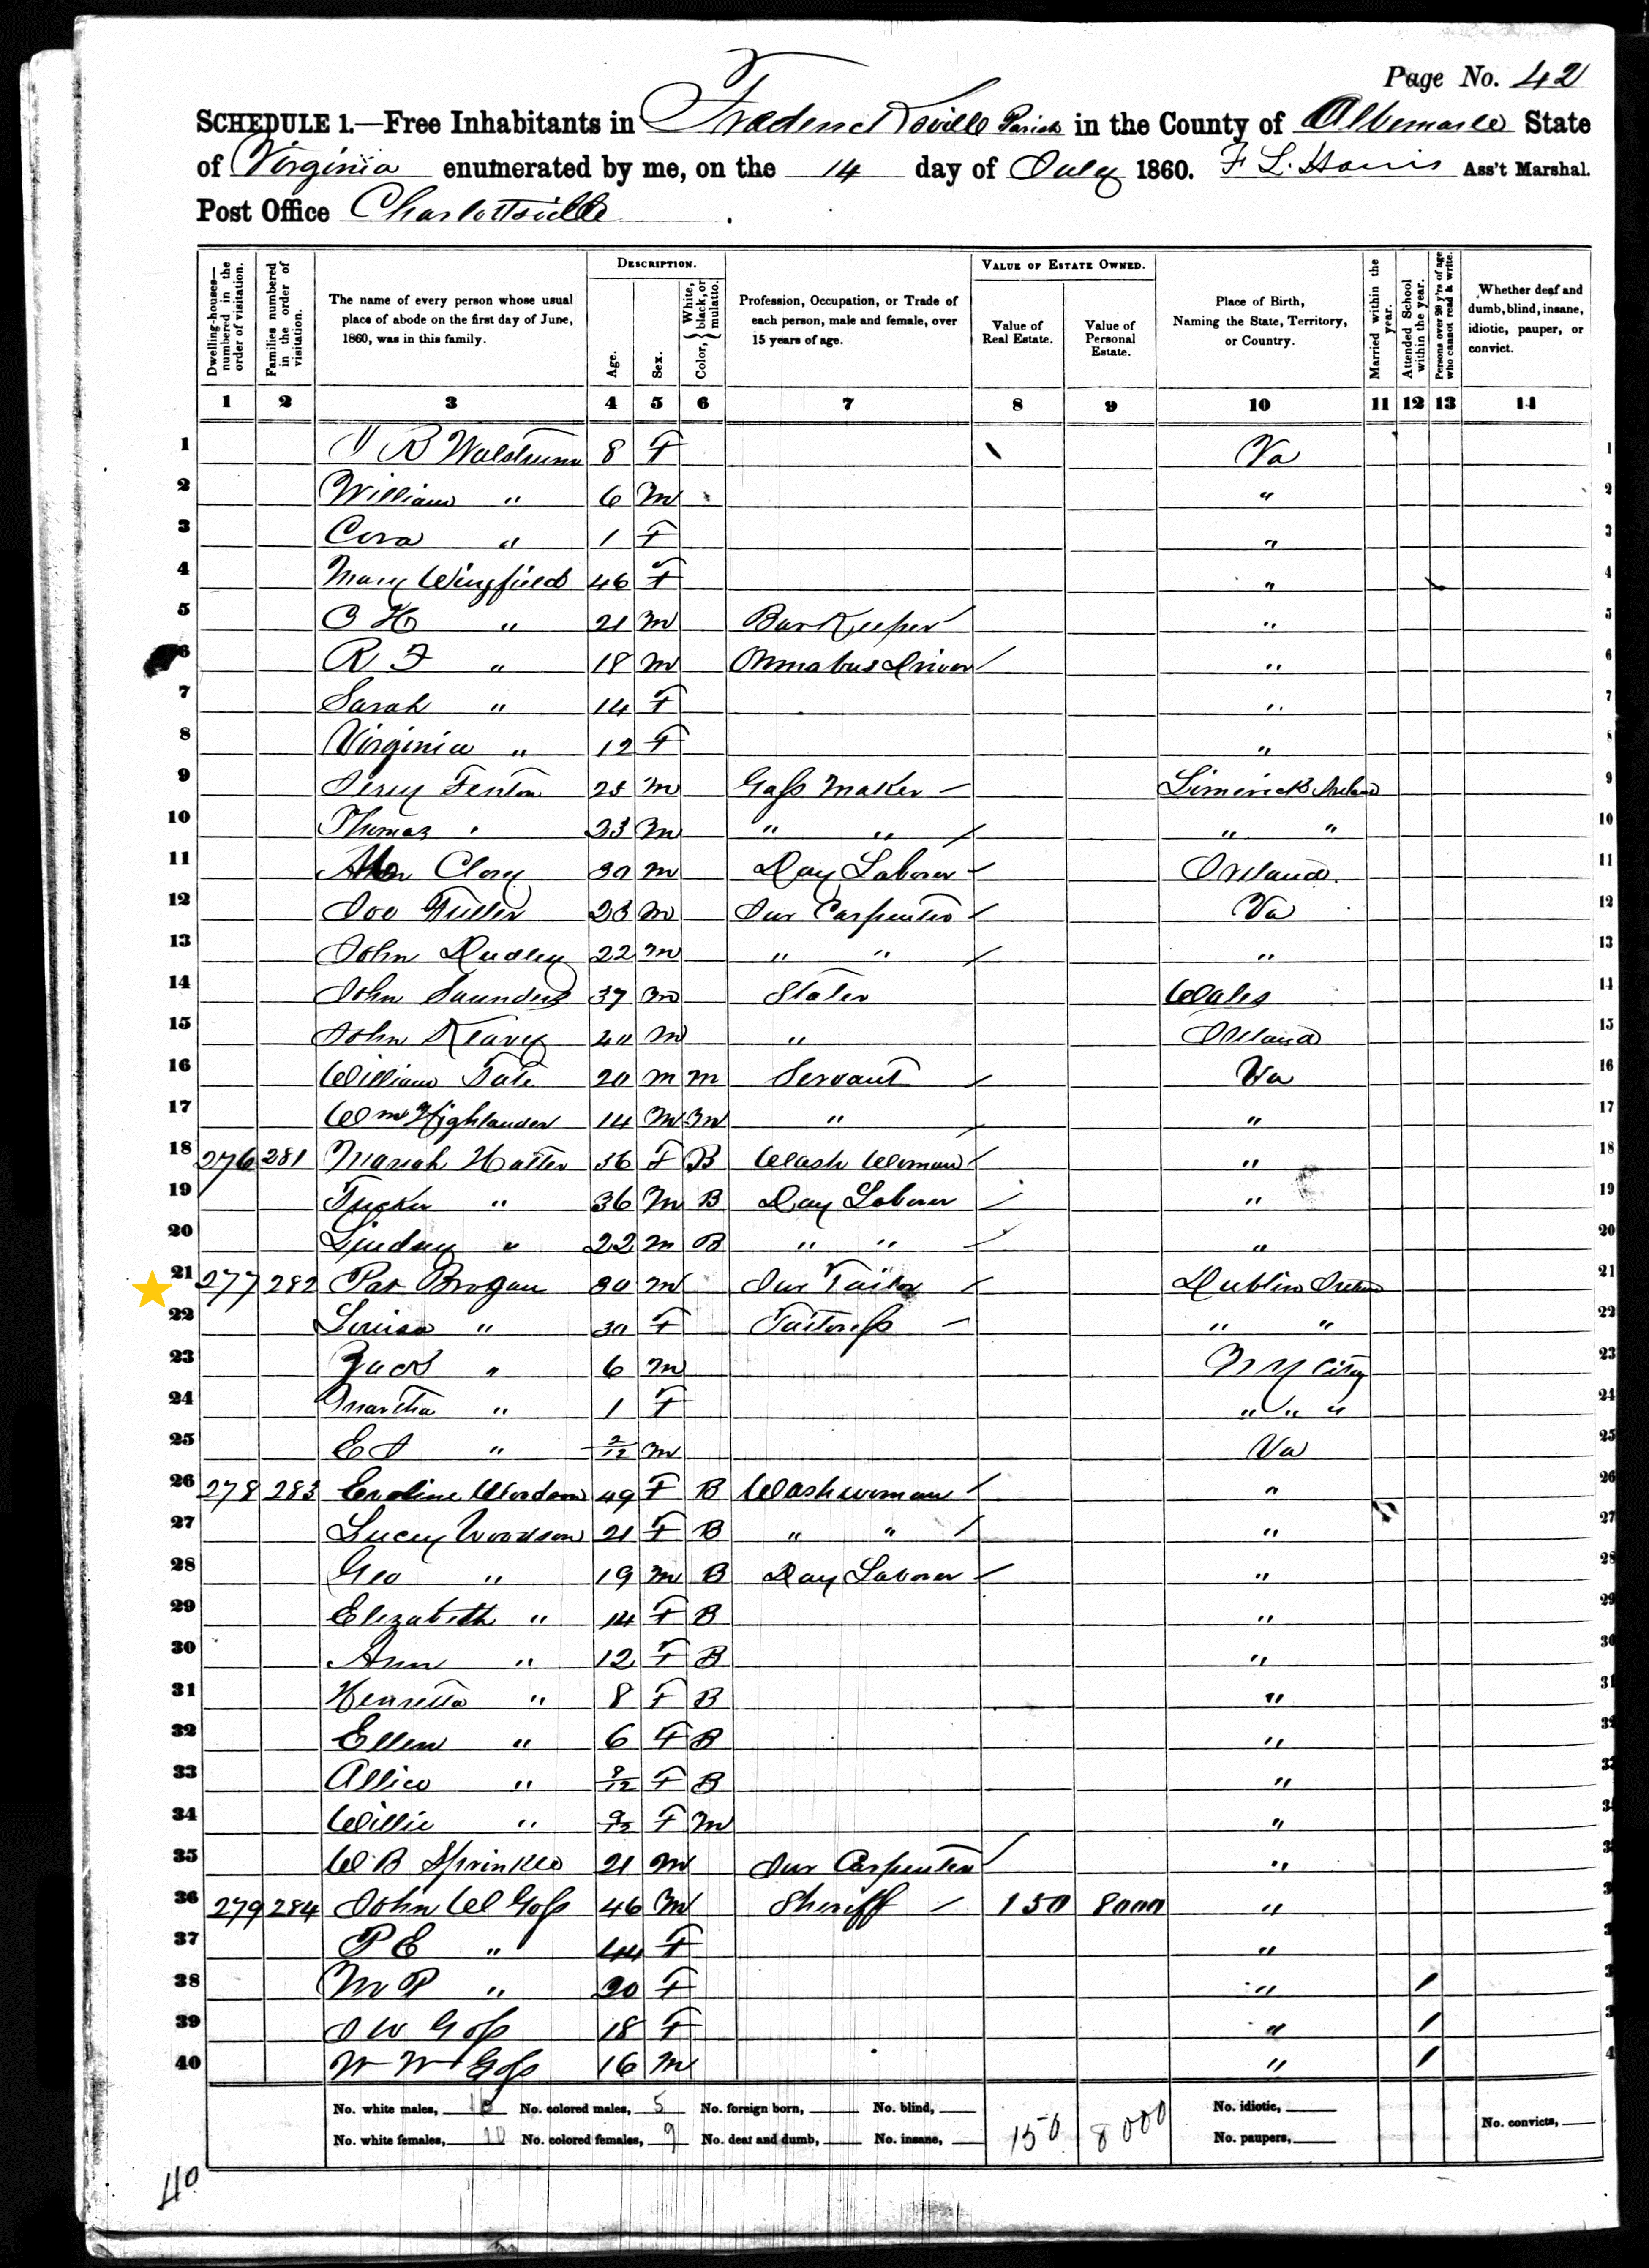 Page No. 42
SCHEDULE 1.—Free Inhabitants in Fredericksville Parish in the County of Albemarle State
of Virginia enumerated by me, on the 14 day of July 1860. F L. Harris Ass't Marshal.
Post Office Charlottsville
Dwelling-houses—numbered in the order of visitation.
Families numbered in the order of visitation.
The name of every person whose usual place of abode on the first day of June, 1860, was in this family.
DESCRIPTION.
Age.
Sex.
Color, White, black, or mulatto.
Profession, Occupation, or Trade of each person, male and female, over 15 years of age.
VALUE OF ESTATE OWNED.
Value of Real Estate.
Value of Personal Estate.
Place of Birth, Naming the State, Territory, or Country.
Married within the year.
Attended School within the year.
Persons over 20 y'rs of age who cannot read & write.
Whether deaf and dumb, blind, insane, idiotic, pauper, or convict.
1 2 3 4 5 6 7 8 9 10 11 12 13 14
1 B 8 F Va 1
2 William " 6 M " 2
3 Cora " 1 F " 3
4 Mary Wingfield 46 F " 4
5 H " 21 M Bar Keeper " 5
6 R F " 18 M Omnabus Driver " 6
7 Sarah " 14 F " 7
8 Virginia " 12 F " 8
9 Fenton M Gass Maker Limerick Ireland 9
10 Thomas " 23 M " " " " 10
11 30 M Day Laborer Ireland 11
12 Joe 23 M Jur Carpenter Va 12
13 John Dudley 22 M " " " 13
14 John Saunders 37 M Slater Wales 14
15 John 40 M " Ireland 15
16 William Tate 20 M M Servant Va 16
17 Wm Highlander 14 M M " " 17
18 276 281 Mariah 36 F B Wash Woman " 18
19 Tucker " 36 M B Day Laborer " 19
20 Lindsay " 22 M B " " " 20
21 277 282 Pat Brogan 30 M Jur Tailor Dublin Ireland 21
22 Louisa " 30 F Tailoress " " 22
23 Zack " 6 M N Y City 23
24 Martha " 1 F " " " 24
25 E J " 2/12 M Va 25
26 278 283 49 F B Washwoman " 26
27 Lucey Woodson 21 F B " " " 27
28 Geo " 19 M B Day Laborer " 28
29 Elizabeth " 14 F B " 29
30 Ann " 12 F B " 30
31 Henretta " 8 F B " 31
32 Ellen " 6 F B "
33 Allice " F B "
34 Willie " F M "
35 W B Sprinkle 21 M Jur Carpenter "
36 279 284 John W Goss 46 M Sheriff 150 8000 "
37 P E " 44 F "
38 M P " 20 F " /
39 J W Goss 18 F " /
40 W W Goss 16 M " /
No. white males, No. colored males, 5 No. foreign born, No. blind, No. idiotic,
No. white females, No. colored females, 9 No. deaf and dumb, No. insane, 150 8000 No. paupers, No. convicts,
40